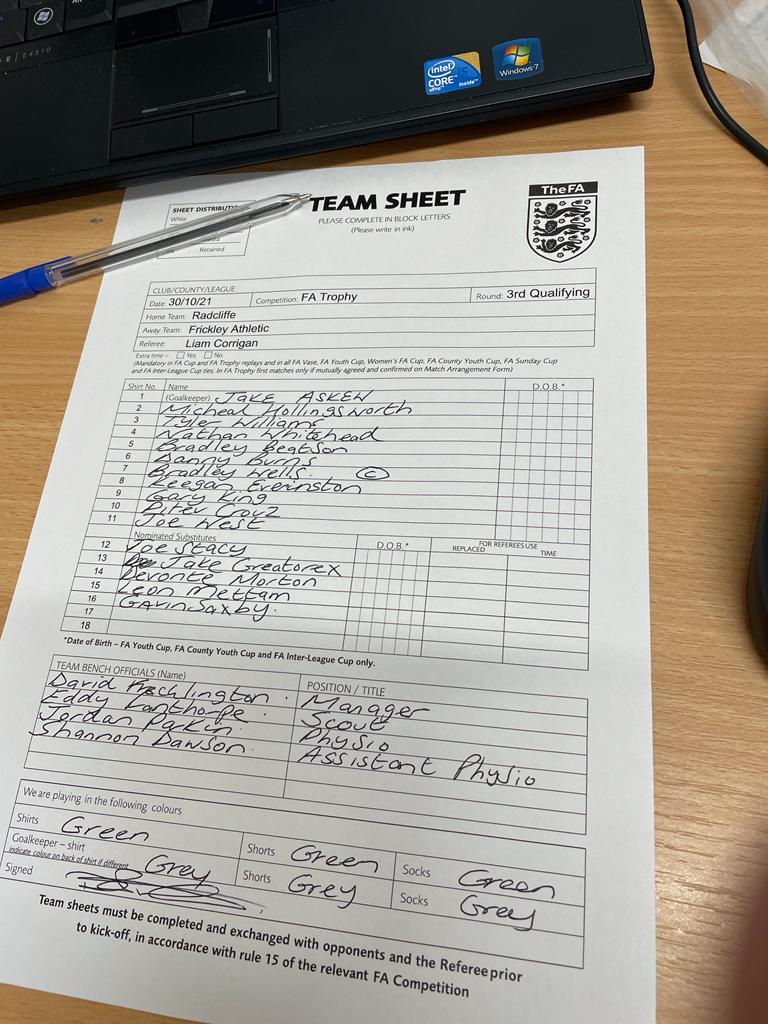 E4310
intel CORE i5 vPro inside
Windows 7
SHEET DISTRIBUTI
White
Retained
TEAM SHEET
PLEASE COMPLETE IN BLOCK LETTERS
(Please write in ink)
The FA
CLUB/COUNTY/LEAGUE:
Date: 30/10/21 Competition: FA Trophy Round: 3rd Qualifying
Home Team: Radcliffe
Away Team: Frickley Athletic
Referee: Liam Corrigan
Extra time – Yes No
(Mandatory in FA Cup and FA Trophy replays and in all FA Vase, FA Youth Cup, Women's FA Cup, FA County Youth Cup, FA Sunday Cup
and FA Inter-League Cup ties. In FA Trophy first matches only if mutually agreed and confirmed on Match Arrangement Form)
Shirt No. Name D.O.B.*
1 (Goalkeeper) JAKE ASKEW
2 Micheal Hollingsworth
3 Tyler Williams
4 Nathan Whitehead
5 Bradley Beatson
6 Danny Burns
7 Bradley Wells. C
8 Keegan Everinston
9 Gary King
10 Piter Crouz
11 Joe West
Nominated Substitutes D.O.B.* FOR REFEREES USE
REPLACED TIME
12 Joe Stacy
13 Jake Greatorex
14 Devonte Morton
15 Leon Mettam
16 Gavin Saxby.
17
18
*Date of Birth – FA Youth Cup, FA County Youth Cup and FA Inter-League Cup only.
TEAM BENCH OFFICIALS (Name) POSITION / TITLE
David Frecklington. Manager
Eddy Kanthorpe. Scout
Jordan Parkin. Physio
Shannon Dawson. Assistant Physio
We are playing in the following colours
Shirts Green Shorts Green Socks Green
Goalkeeper – shirt
indicate colour on back of shirt if different Grey Shorts Grey Socks Grey
Signed
Team sheets must be completed and exchanged with opponents and the Referee prior
to kick-off, in accordance with rule 15 of the relevant FA Competition